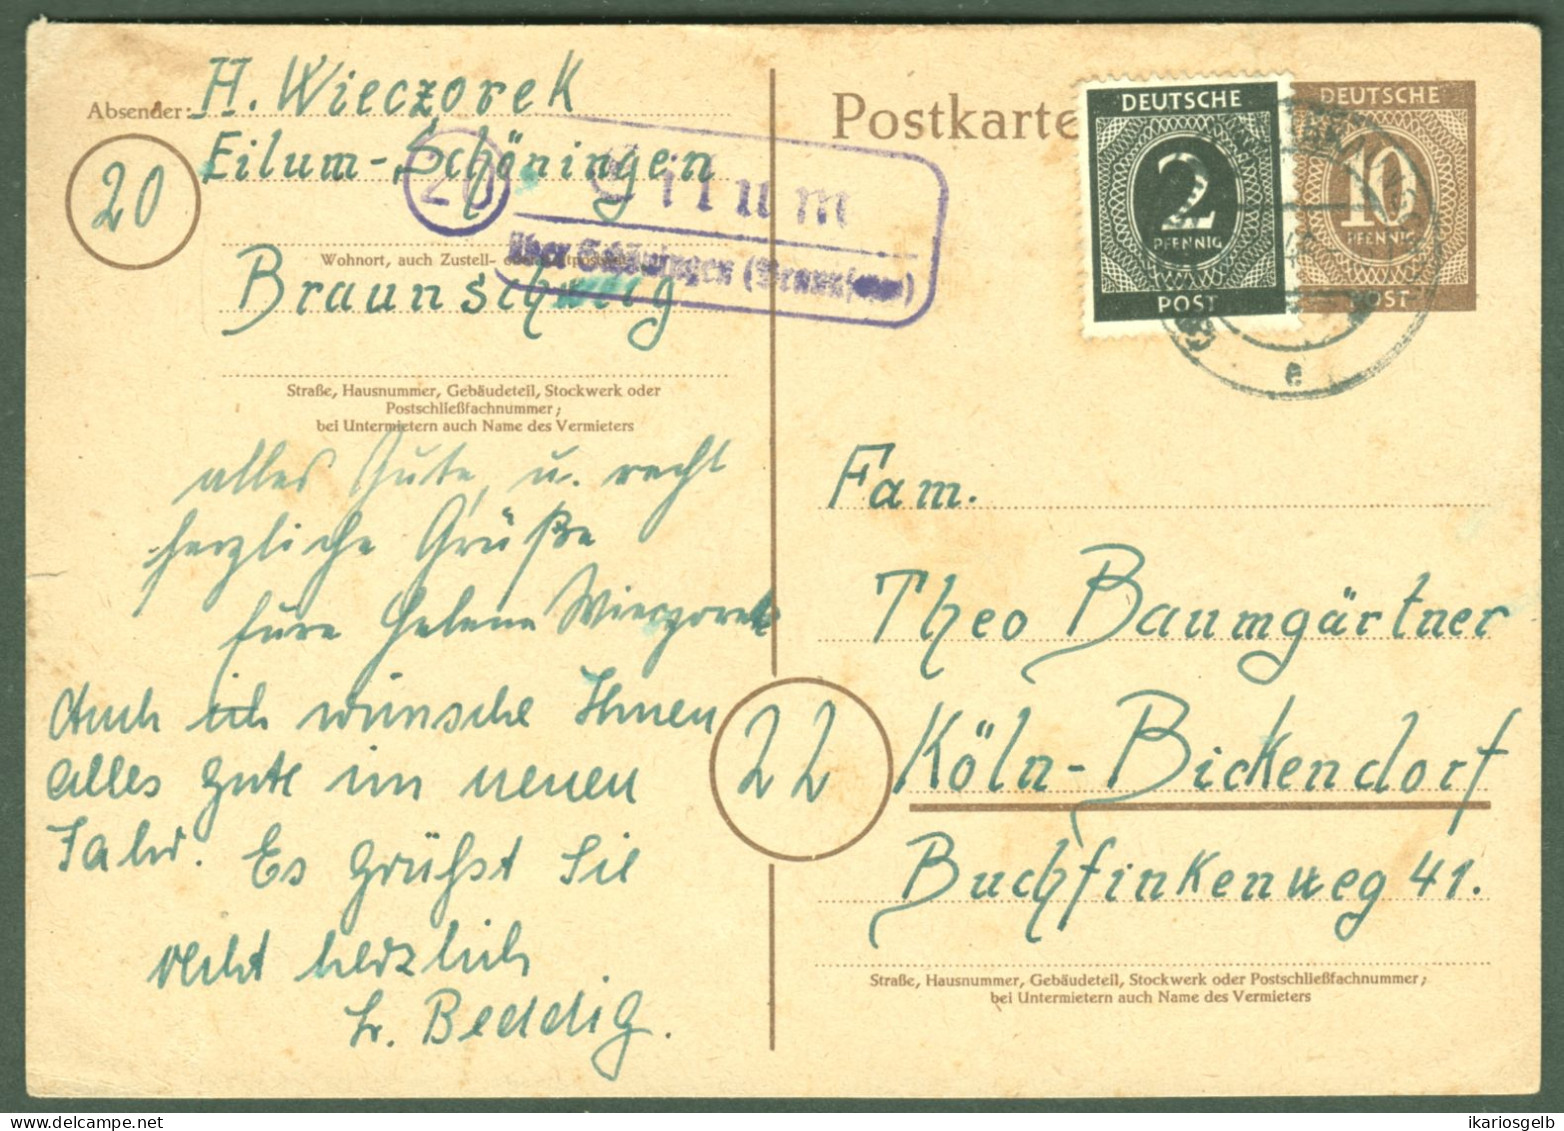 Absender: H. Wieczorek
20 Eilum-Schöningen
Wohnort, auch Zustell- oder
Braunschweig
Straße, Hausnummer, Gebäudeteil, Stockwerk oder
Postschließfachnummer;
bei Untermietern auch Name des Vermieters
20 Eilum
über Schöningen
alles Gute u. recht
herzliche Grüße
Helene Wieczorek
Auch ich wünsche Ihnen
alles gute im neuen
Jahr. Es grüßt Sie
recht herzlich
Beddig.
Postkarte
DEUTSCHE
2
PFENNIG
POST
DEUTSCHE
10
PFENNIG
POST
e
Fam.
Theo Baumgärtner
22 Köln-Bickendorf
Buchfinkenweg 41.
Straße, Hausnummer, Gebäudeteil, Stockwerk oder Postschließfachnummer;
bei Untermietern auch Name des Vermieters
ikariosgelb